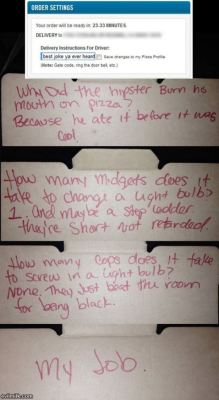 ORDER SETTINGS
Your order will be ready in: 23.33 MINUTES
DELIVERY to
Delivery Instructions For Driver:
best joke ya ever heard
Save changes to my Pizza Profile
(Note: Gate code, ring the door bell, etc.)
Why Did the hipster Burn his
mouth on pizza?
Because he ate it before it was
Cool.
How many Midgets does it
take to change a light bulb?
1. And maybe a step ladder
they're short not retarded.
How many Cops does it take
to screw in a light bulb?
None. They Just beat the room
for being black.
My Job.
evilmilk.com